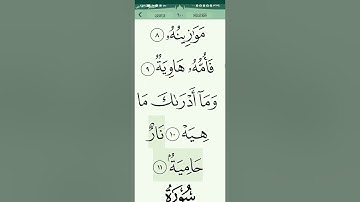 مَوَٰزِينُهُۥ ٨
فَأُمُّهُۥ هَاوِيَةٌ ٩
وَمَآ أَدْرَىٰكَ مَا
هِيَهْ ١٠ نَارٌ
حَامِيَةٌۢ ١١
سُورَةُ